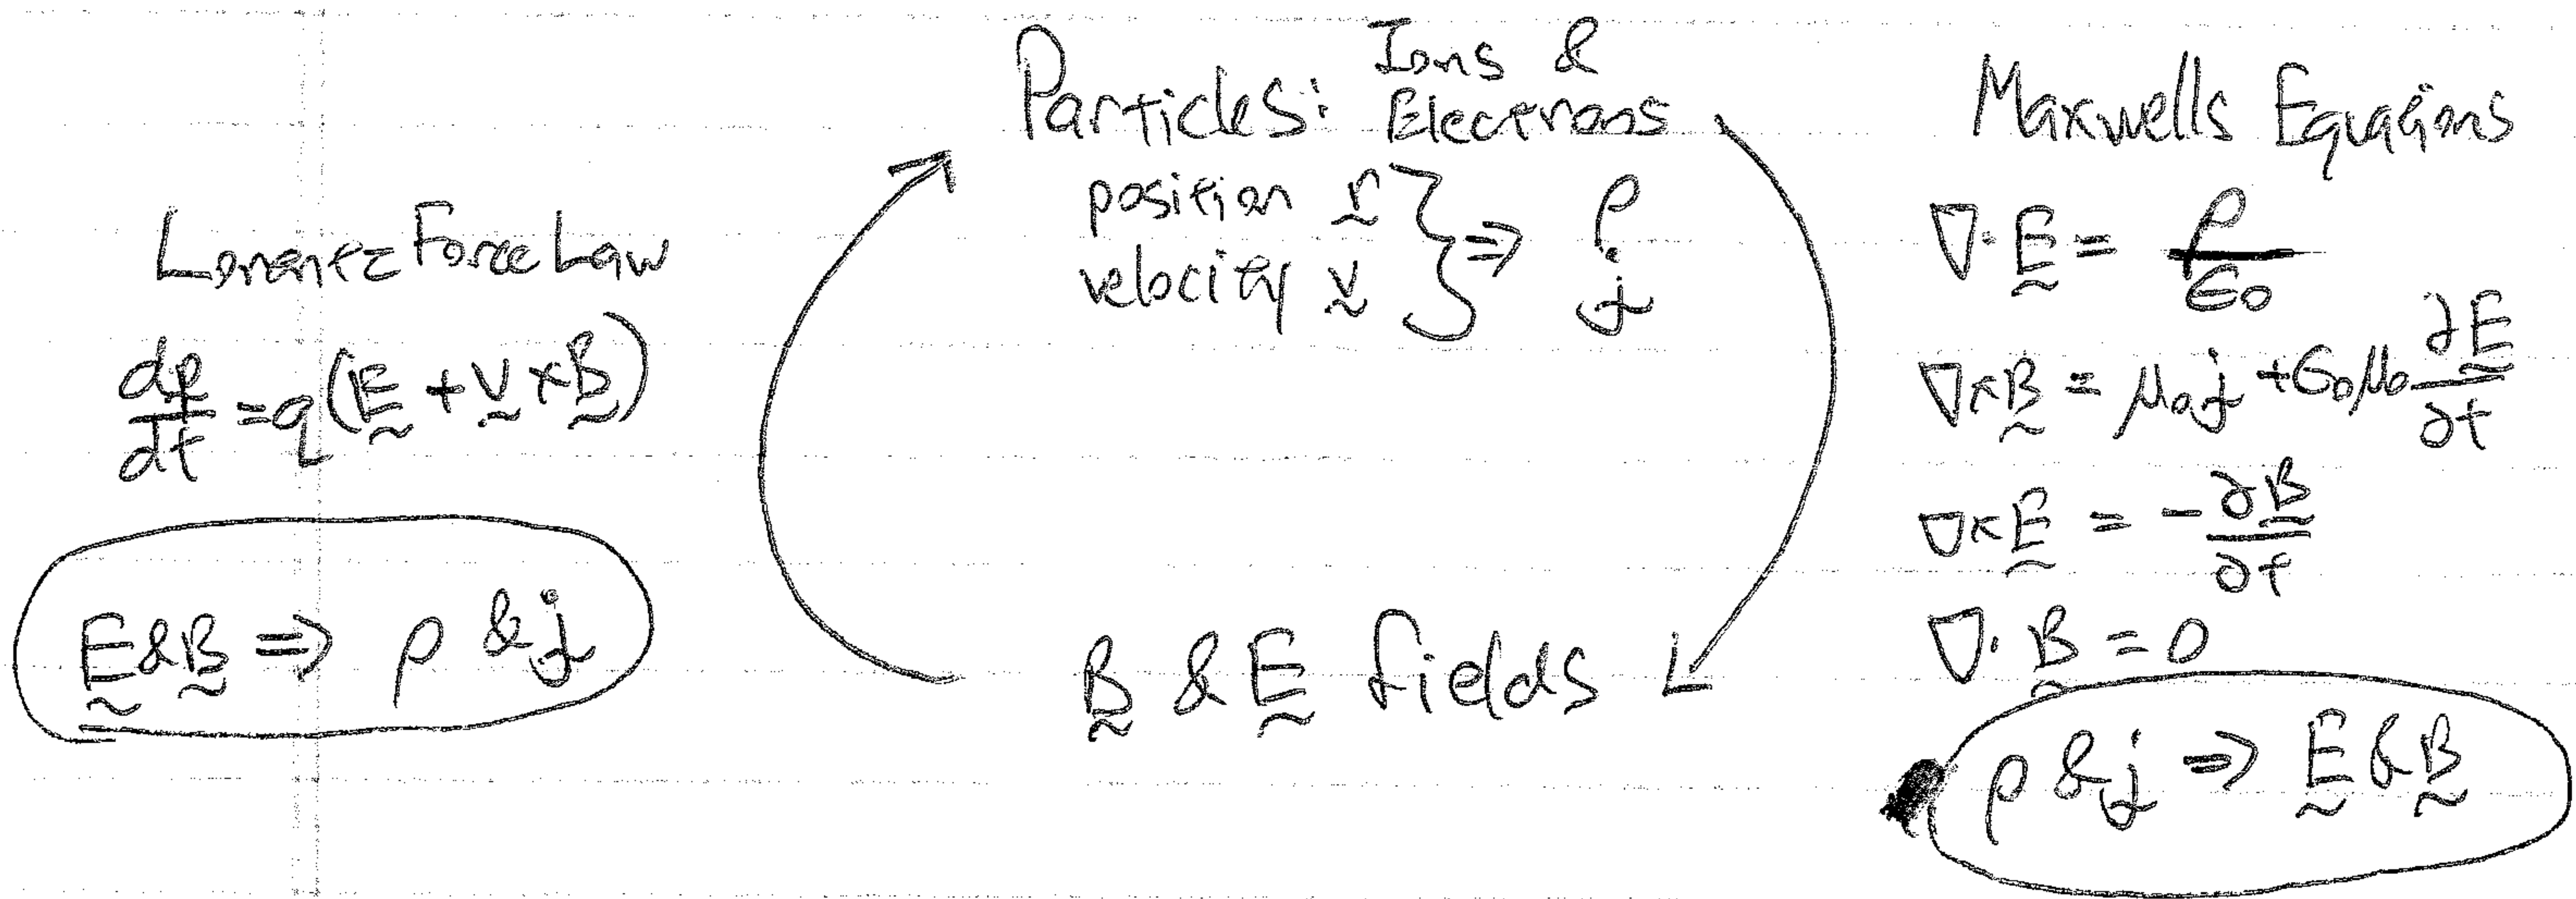 Lorentz Force Law
dp/dt = q(E + v × B)
E & B ⇒ ρ & j
Particles: Ions &
Electrons
position r } ⇒ ρ
velocity v } j
B & E fields
Maxwells Equations
∇·E = ρ/ϵ₀
∇×B = μ₀j + ϵ₀μ₀ ∂E/∂t
∇×E = -∂B/∂t
∇·B = 0
ρ & j ⇒ E & B